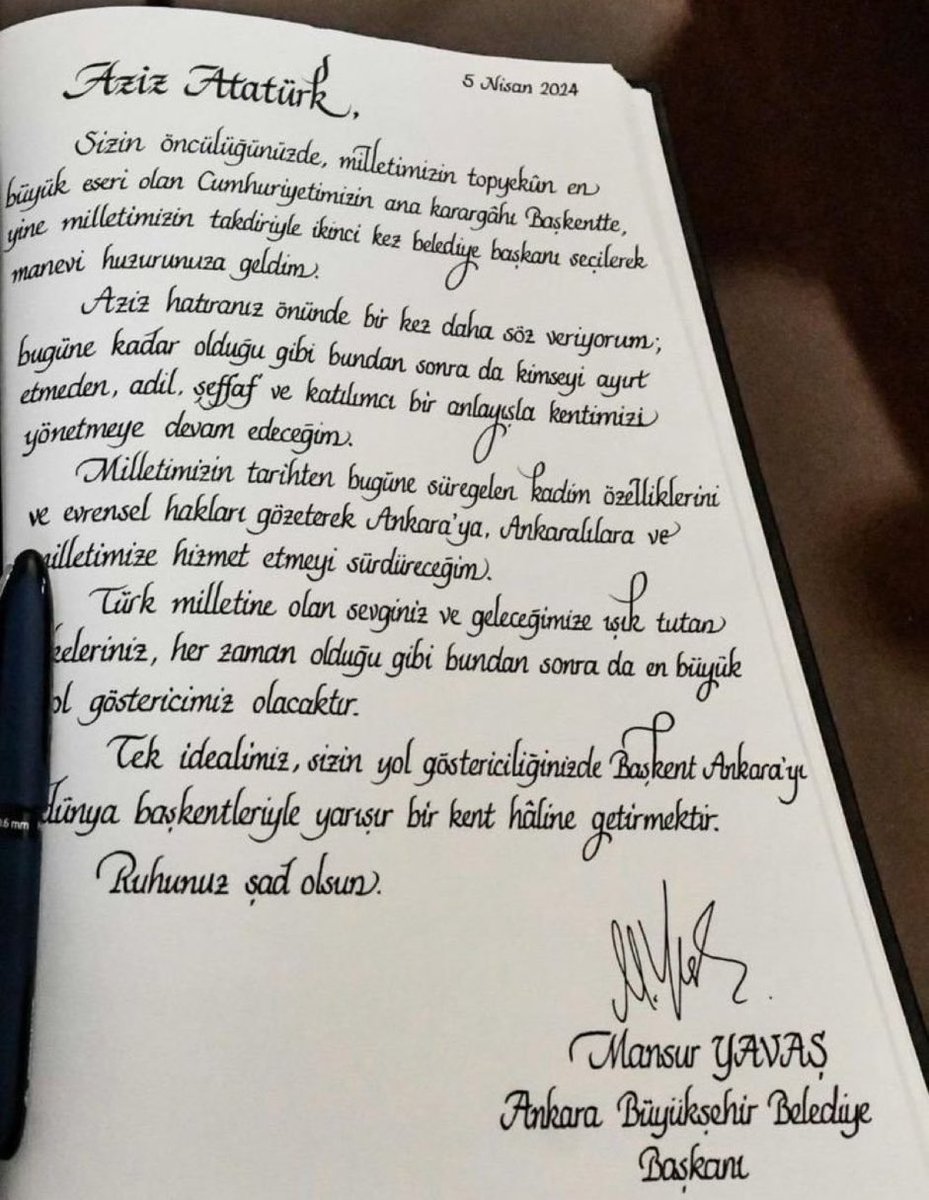 Aziz Atatürk,
5 Nisan 2024
Sizin öncülüğünüzde, milletimizin topyekûn en
büyük eseri olan Cumhuriyetimizin ana karargâhı Başkentte,
yine milletimizin takdiriyle ikinci kez belediye başkanı seçilerek
manevi huzurunuza geldim.
Aziz hatıranız önünde bir kez daha söz veriyorum;
bugüne kadar olduğu gibi bundan sonra da kimseyi ayırt
etmeden, adil, şeffaf ve katılımcı bir anlayışla kentimizi
yönetmeye devam edeceğim.
Milletimizin tarihten bugüne süregelen kadim özelliklerini
ve evrensel hakları gözeterek Ankara'ya, Ankaralılara ve
milletimize hizmet etmeyi sürdüreceğim.
Türk milletine olan sevginiz ve geleceğimize ışık tutan
keleriniz, her zaman olduğu gibi bundan sonra da en büyük
ol göstericimiz olacaktır.
Tek idealimiz, sizin yol göstericiliğinizde Başkent Ankara'yı
dünya başkentleriyle yarışır bir kent hâline getirmektir.
Ruhunuz şad olsun.
Mansur YAVAŞ
Ankara Büyükşehir Belediye
Başkanı